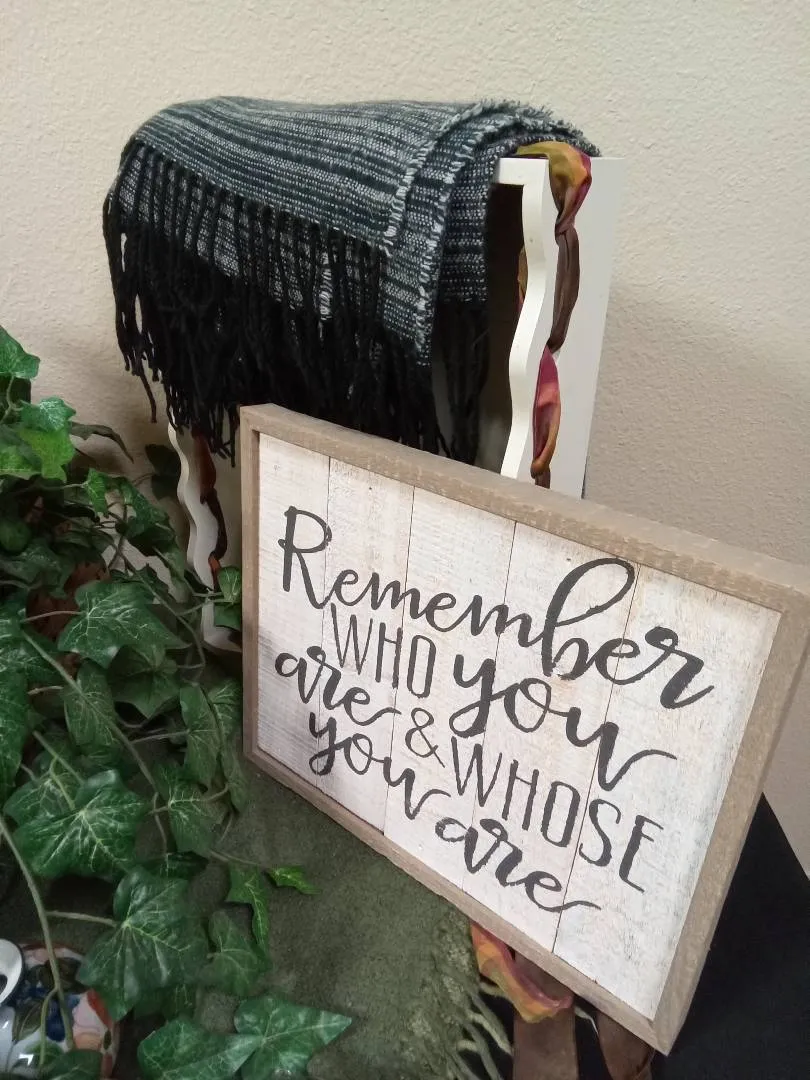 Remember
WHO you
are & WHOSE
you are